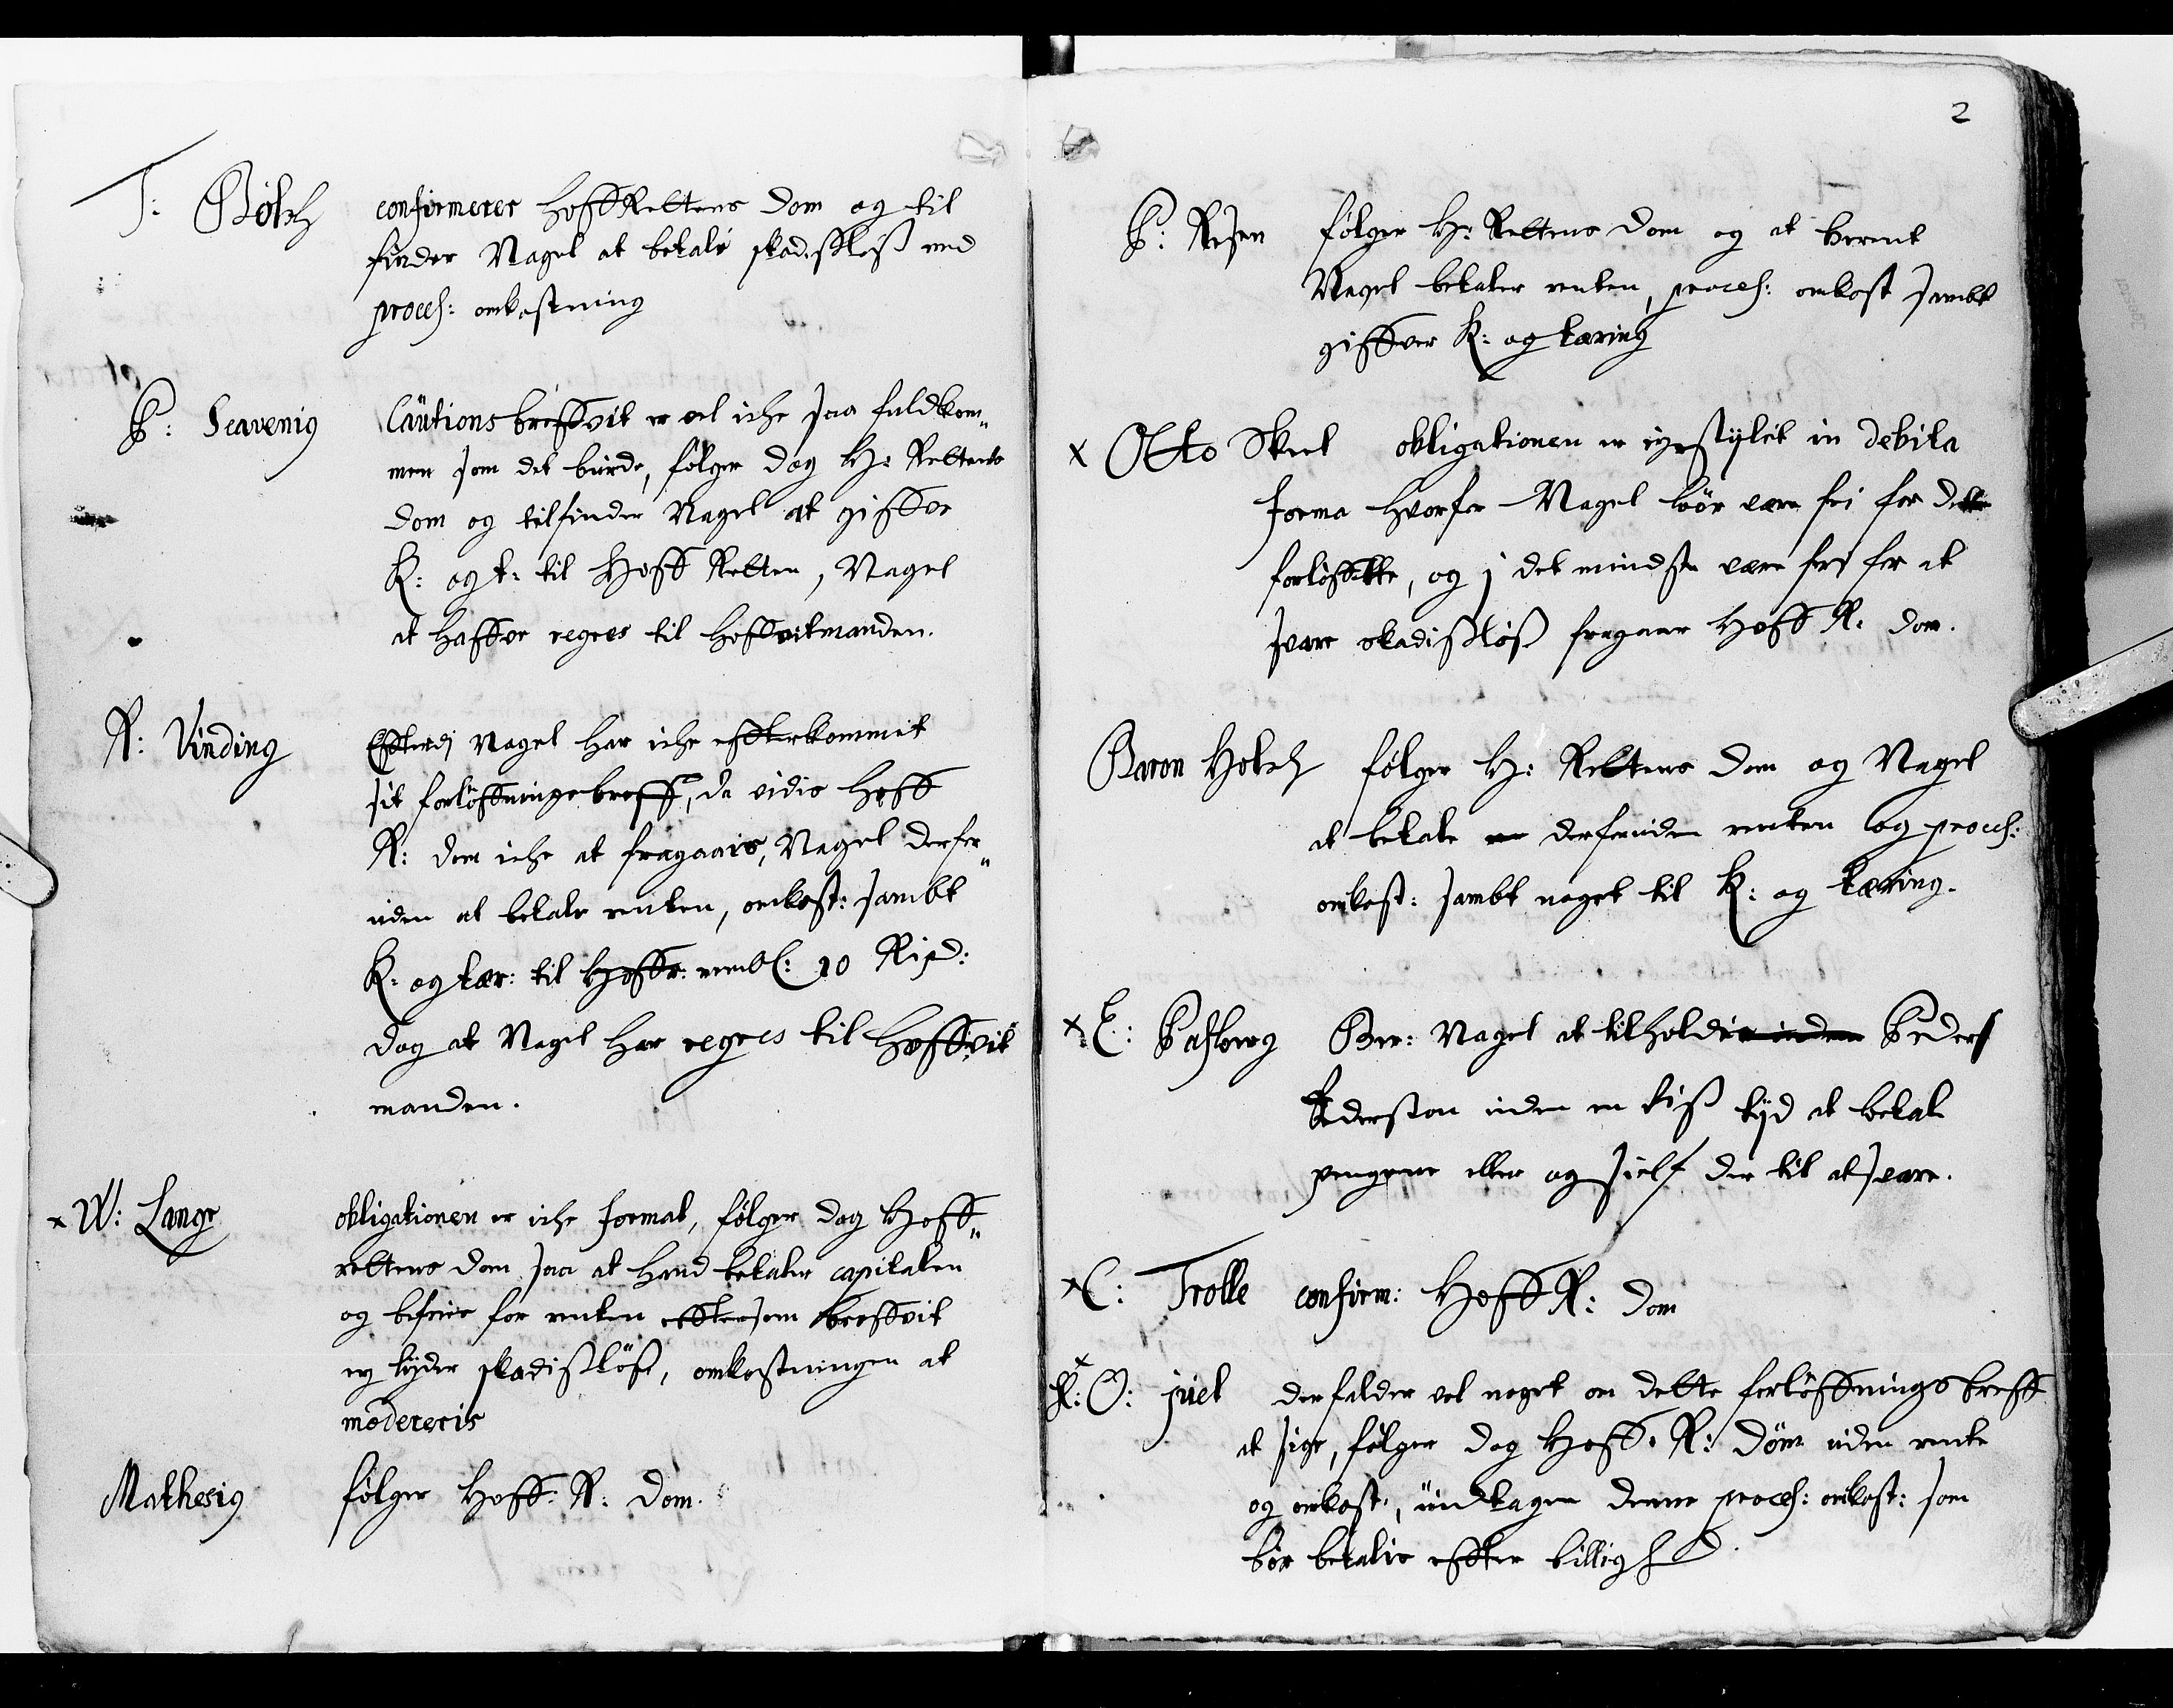 T: Bölch confirmerer HoffRettens dom og til
finder Nagel at betale skadisslöß med
process: omkostning
P: Scavenius Cautions breffvit er vel iche saa fuldkom„
men som det burde, fölger dog H: Rettens
dom og tilfinder Nagel at giffve
K: og t: til Hoff Retten, Nagel
at haffve regres til hoffvitmanden.
R: Vinding Efterdj Nagel har iche effterkommit
sit forlöffningsbreff, da vidis Hoff
R: dom iche at fragaais, Nagel derfor„
uden at betale renten, omkost: sambt
K: og tær: til Hoffr: nembl: 10 Rixd:
dog at Nagel har regres til hoffvit
manden.
x W: Lange obligationen er iche formal, fölger dog Hoff„
rettens dom saa at hand betaler capitalen
og befries for renten efftersom breffvit
ey lyder skadisslöß, omkostningen at
modereris
Mathesius fölger Hoff: R: dom.
2
P: Resen fölger H: Rettens dom og at Berent
Nagel betaler renten, process: omkost sambt
giffver K: og tæring
x Otto Skeel obligationen er ey stylet in debita
forma hvorfor Nagel bör være fri for dette
forlöffte, og j det mindste være fri for at
svare skadisslöß fragaar Hoff R: dom.
Baron Holch fölger H: Rettens dom og Nagel
at betale derforuden renten og process:
omkost: sambt noget til K: og tæring.
x E: Ber: Nagel at tilholde Peder
Pederssøn inden en viß tyd at betale
pengene eller og sielf der til at svare.
x C: Trolle confirm: Hoff R: dom
x K: O: juel der falder vel noget om dette forlöffnings breff
at sige, fölger dog Hoff. R: döm uden rente
og omkost:, undtagen denne process: omkost: som
bör betalis effter billighed.